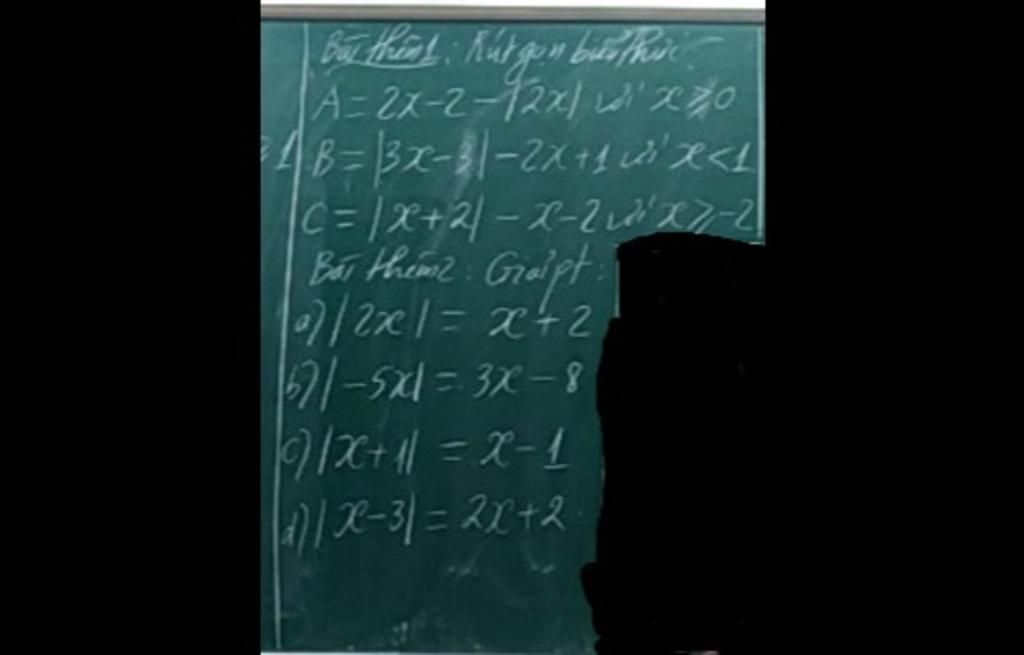 Bài thêm1: Rút gọn biểu thức
A = 2x-2 - |2x| với x ≥ 0
1 B = |3x-3| - 2x+1 với x < 1
C = |x+2| - x-2 với x ≥ -2
Bài thêm2: Giải pt:
a) |2x| = x+2
b) |-5x| = 3x - 8
c) |x+1| = x-1
d) |x-3| = 2x+2